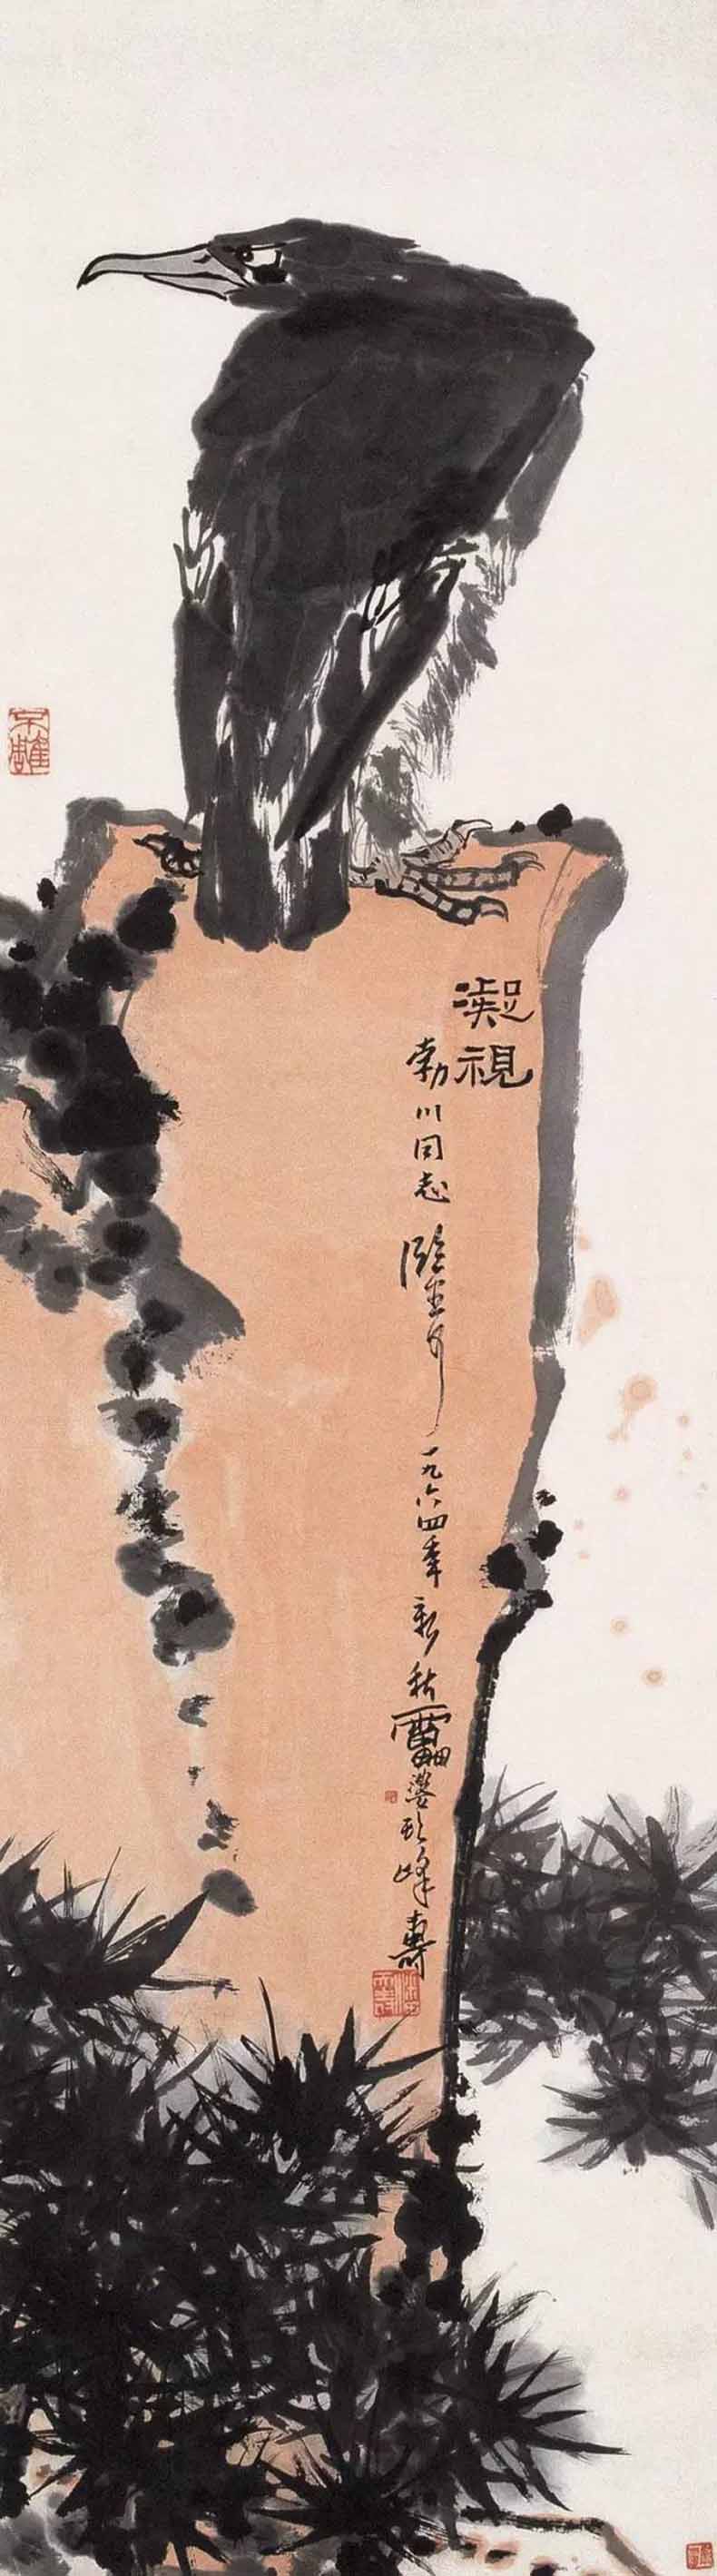 凝視
勃川同志鑒正 一九六四年新秋雷婆頭峰壽